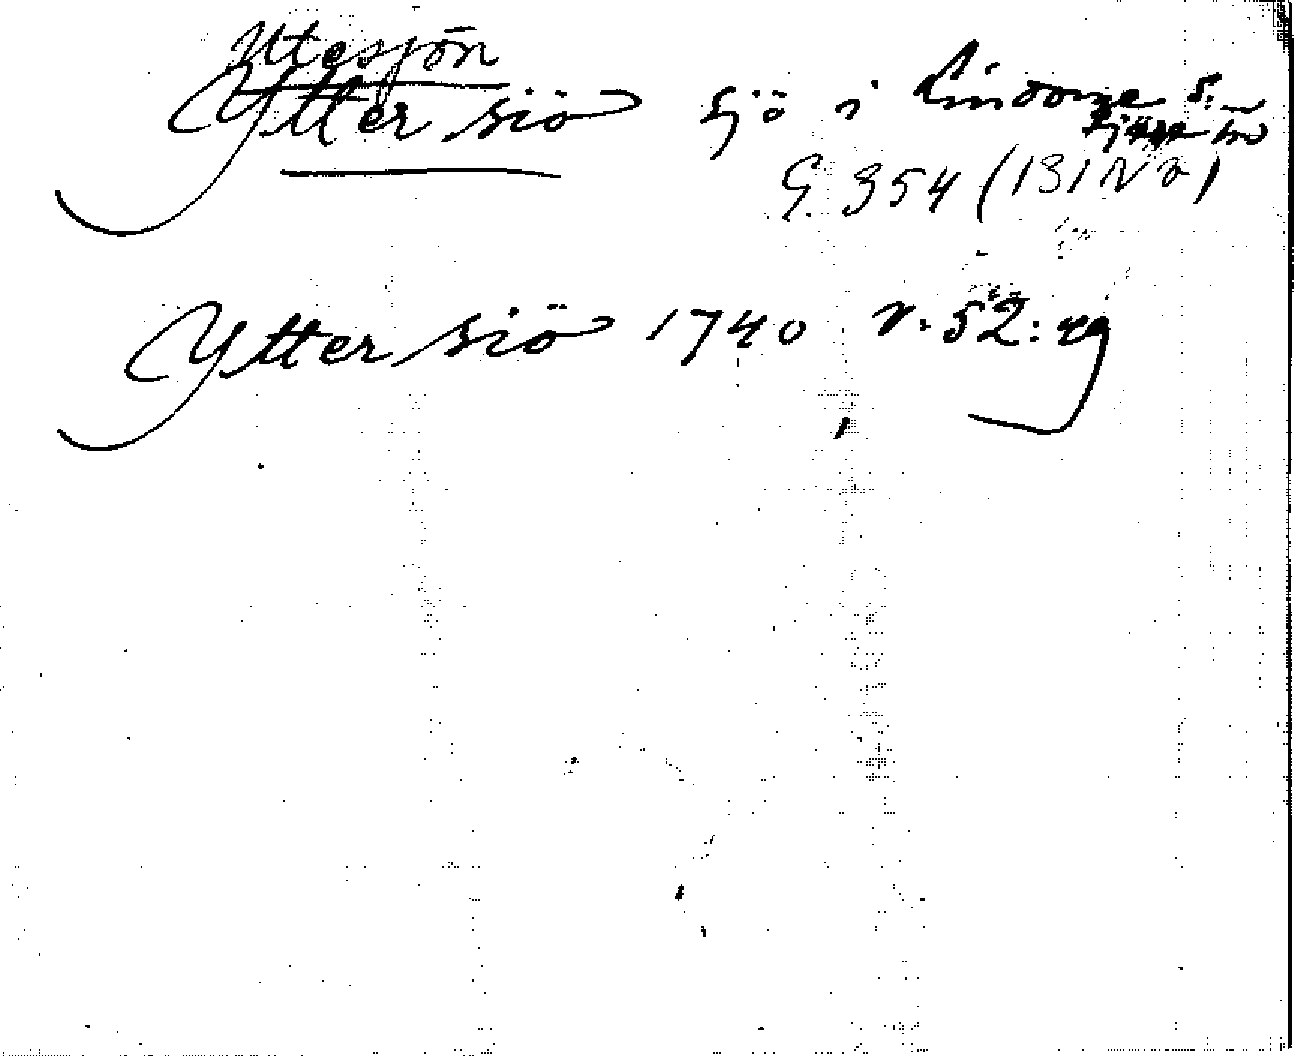 Utesjön
Ytter siö sjö i Lindome s:n
Fjäre hd
G. 354 (131 N v)
Ytter siö 1740 v. 52: rg